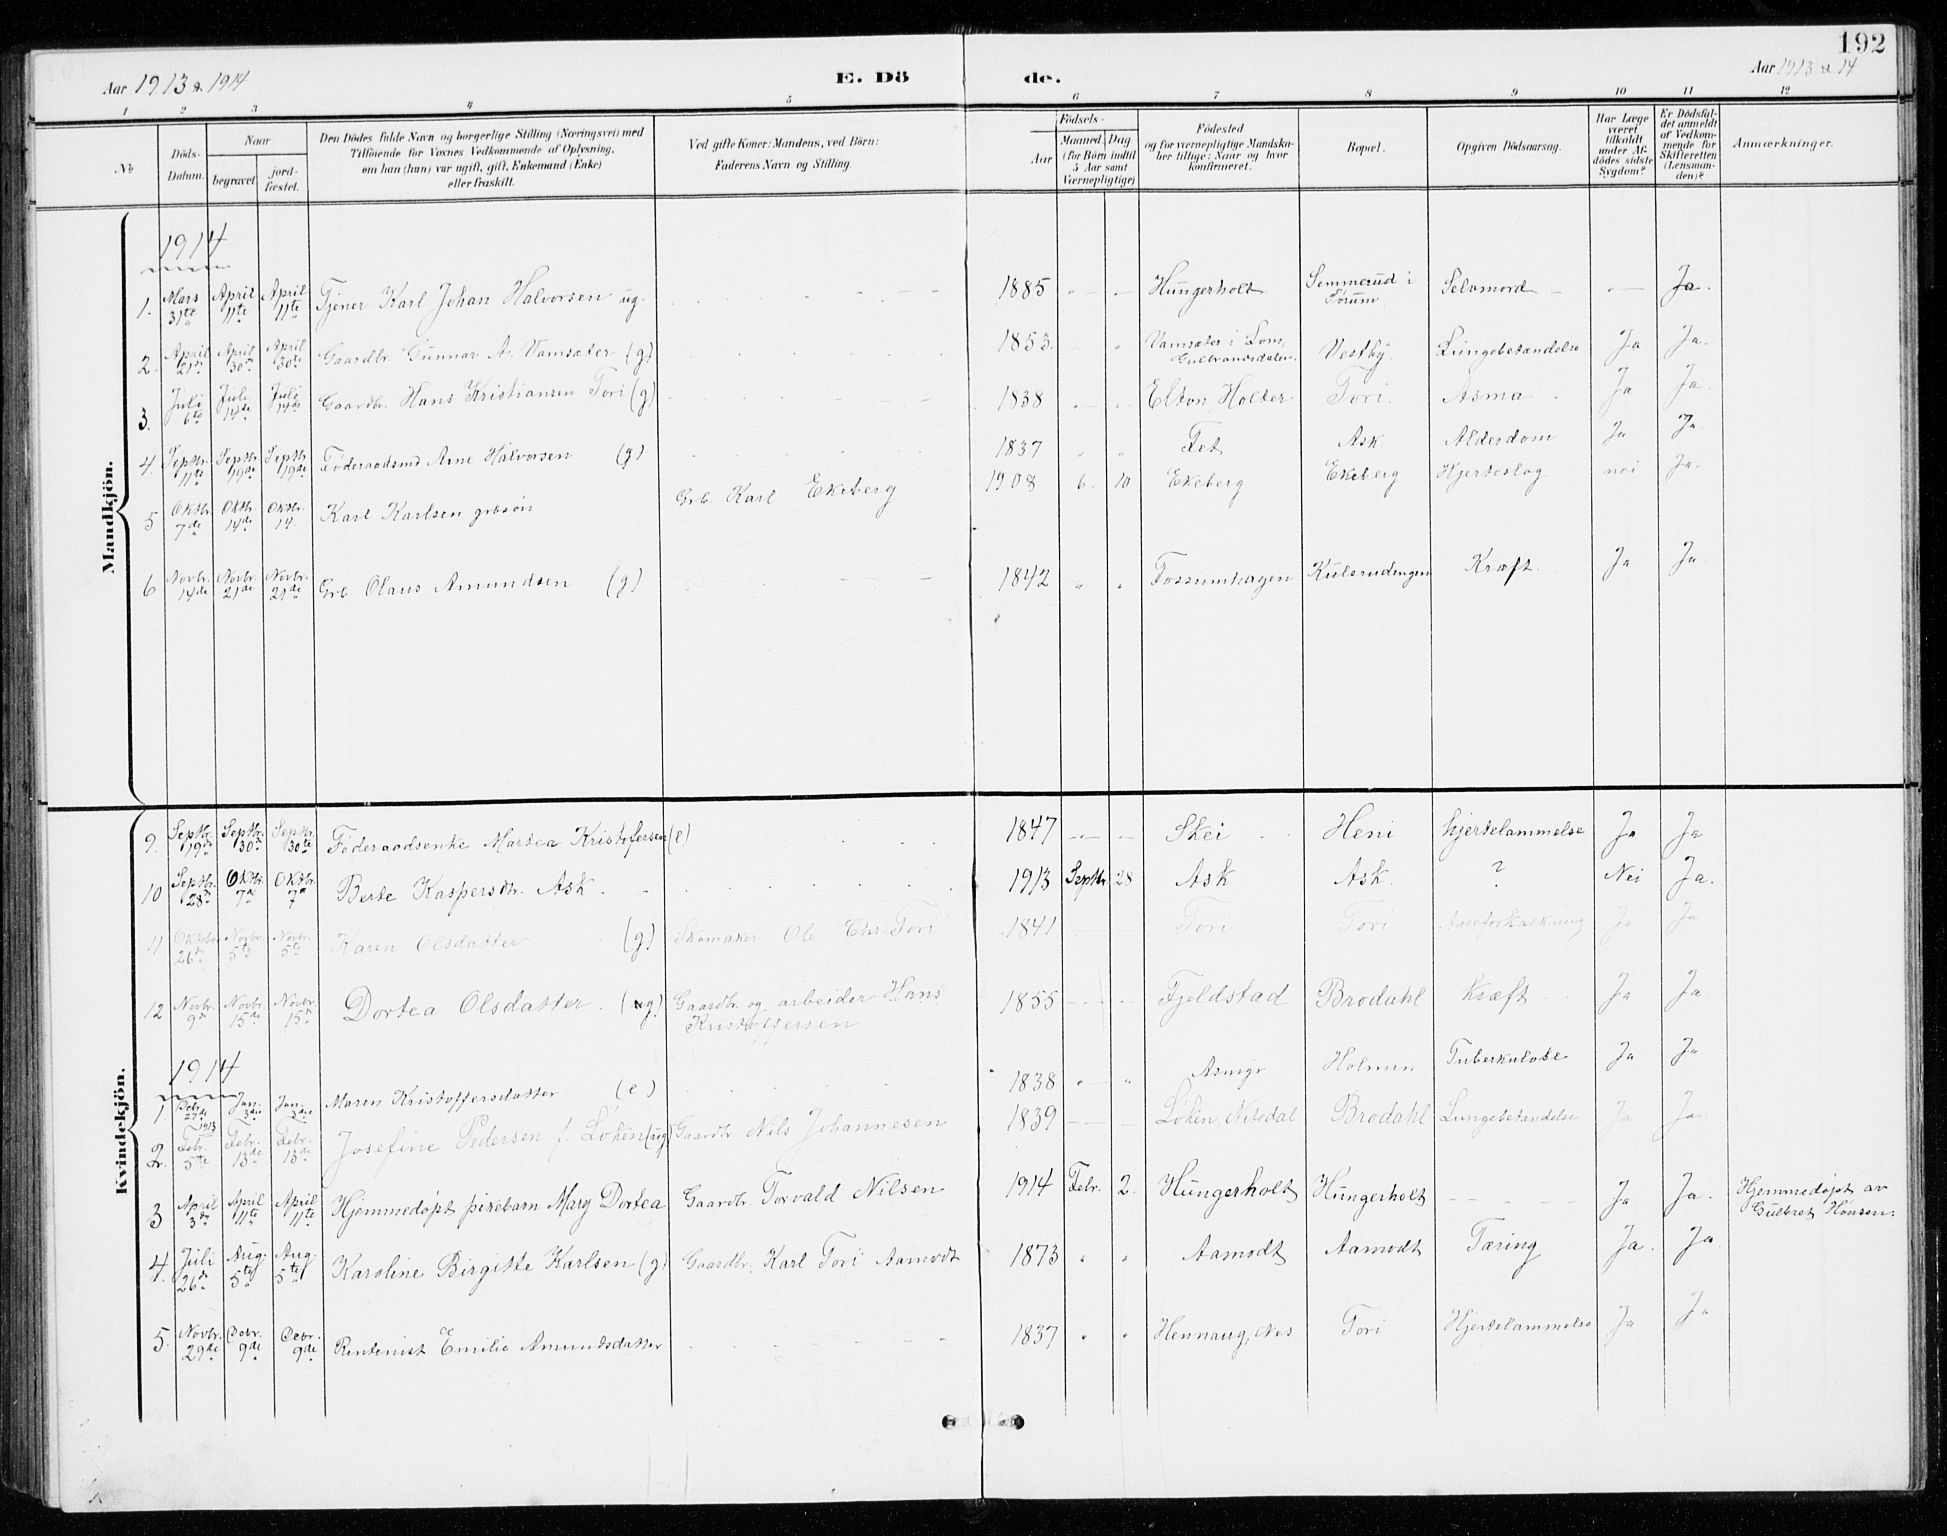 192
Aar 1913 & 1914
E. Dö
de.
Aar 1913 & 14
1 2 3 4 5 6 7 8 9 10 11 12
No
Döds-Datum.
Naar
begravet
jord-fæstet.
Den Dödes fulde Navn og borgerlige Stilling (Næringsvei) med
Tilföiende for Voxnes Vedkommende af Oplysning,
om han (hun) var ugift, gift, Enkemand (Enke)
eller fraskilt.
Ved gifte Koner: Mandens, ved Börn:
Faderens Navn og Stilling.
Födsels-
Aar
Maaned
Dag
(for Börn indtil
5 Aar samt
Værnepligtige)
Födested
og for værnepligtige Mandska-
ber tillige: Naar og hvor
konfirmeret.
Bopæl.
Opgiven Dödsaarsag.
Har Læge
været
tilkaldt
under Af-
dödes sidste
Sygdom?
Er Dödsfal-
det anmeldt
af Vedkom-
mende for
Skifteretten
(Lensman-
den)?
Anmærkninger.
Mandkjön.
1914
1. Mars 31te April 11te April 11te Tjener Karl Johan Halvorsen ug. 1885 Hungerholt Semmerud i Sørum Selvmord — Ja.
2. April 21de April 30te April 30te Gaardbr. Gunnar A. Vamsæter (g) 1853. Vamsæter i Lom, Gulbrandsdalen. Vestby. Lungebetændelse Ja Ja.
3. Juli 6te Juli 14de Juli 14de Gaardbr. Hans Kristiansen Tori (g) 1838 Elton, Holter Tori. Asma Ja Ja.
4. Septbr. 11te Septbr. 19de Septbr. 19de Føderaadsmd Arne Halvorsen (g) 1837 Fet Ask Alderdom Ja Ja.
5 Oktbr. 7de Oktbr. 14de Oktbr. 14. Karl Karlsen grbsøn Grb. Karl Ekeberg 1908 6. 10 Ekeberg Ekeberg Hjerteslag nei Ja.
6 Novbr. 14de Novbr. 21de Novbr. 21de Grb. Olaus Amundsen (g) 1842 Fossumhagen Kulsrudengen Kræft. Ja Ja.
Kvindekjön.
9. Septbr. 19de Septbr. 30te Septbr. 30te Føderaadsenke Martea Kristofersen (e) 1847 Skei Heni hjertelammelse Ja Ja
10 Septbr. 28de Oktbr. 7de Oktbr. 7de Berte Kaspersdtr. Ask. 1913 Septbr. 28 Ask Ask. ? Nei Ja.
11. Oktober 26de Novbr. 5te Novbr. 5te Karen Olsdatter (g) Skomaker Ole Chr. Tori 1841 Tori Tori Aareforkalkning Ja Ja
12 Novbr. 9de Novbr. 15de Novbr. 15de Dortea Olsdatter. (g) Gaardbr. og arbeider Hans
Kristoffersen 1855 Fjeldstad Brodahl Kræft Ja Ja
1914
1 Debr. 27de 1913 Jan. 3die Jan. 3die Maren Kristoffersdatter (e) 1838 Asmyr Holmen Tuberkulose Ja Ja
2. Febr. 5te Febr. 13de Febr. 13de Josefine Pedersen f. Løken (ug) Gaardbr. Nils Johannesen 1839 Løken, Nitedal Brodahl Lungebetændelse Ja Ja.
3 April 3de April 11te April 11te Hjemmedøpt pikebarn Marg Dortea Gaardbr. Torvald Nilsen 1914 Febr. 2. Hungerholt Hungerholt Ja Ja. Hjemmedøpt av
Gulbret Hansen.
4. Juli 26de Aug. 5te Aug. 5te Karoline Birgitte Karlsen (g) Gaardbr. Karl Tori Aamodt 1873 Aamodt Aamodt Tæring Ja. Ja.
5. Novbr. 29de Debr. 9de Debr. 9de Rentenist Emilie Amundsdatter 1837 Hennaug, Nes Tori Hjertelammelse Ja Ja